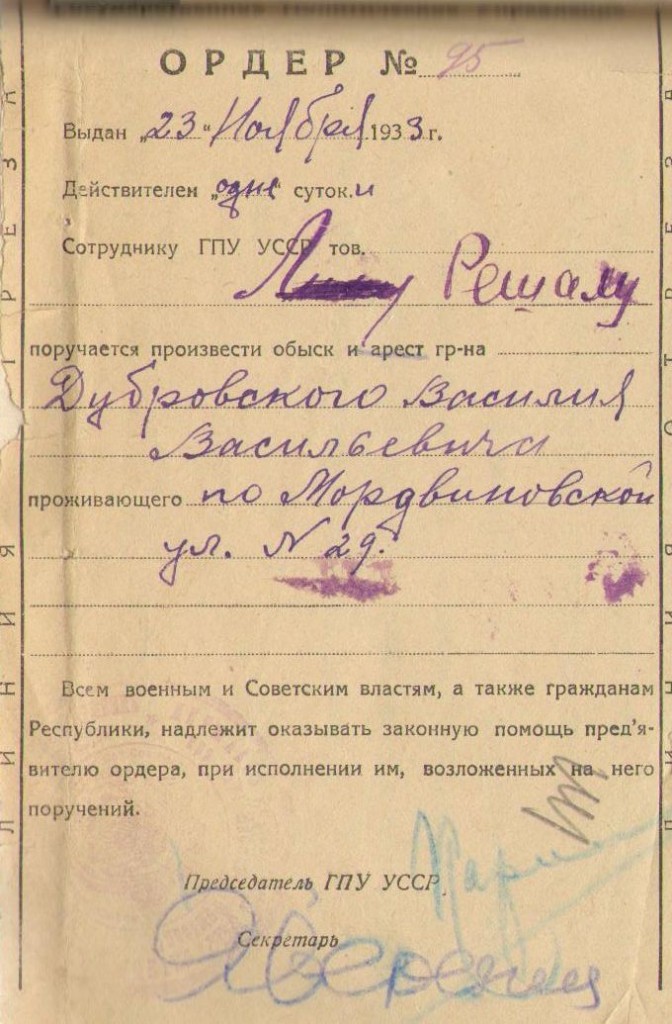 ОРДЕР № 95
Выдан „23“ Ноября 1933 г.
Действителен „одне“ суток и
Сотруднику ГПУ УССР тов.
Решалу
поручается произвести обыск и арест гр-на
Дубровского Василия
Васильевича
проживающего по Мордвиновской
ул. N 29.
Всем военным и Советским властям, а также гражданам
Республики, надлежит оказывать законную помощь пред'я-
вителю ордера, при исполнении им, возложенных на него
поручений.
Председатель ГПУ УССР
Секретарь
ЛИНИЯ ОТРЕЗА